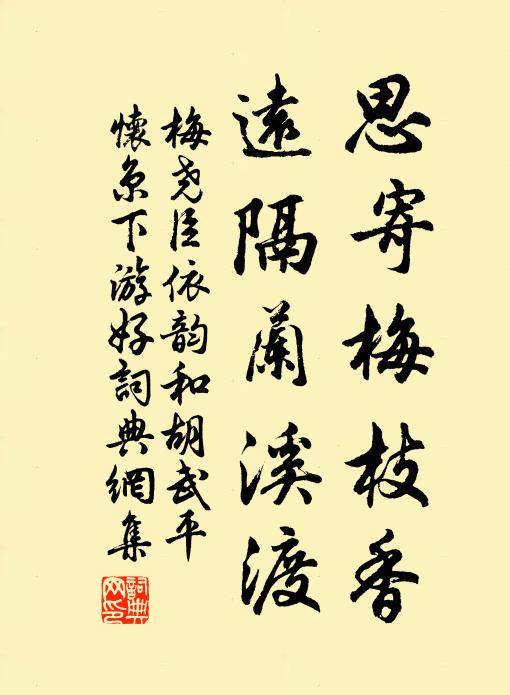 思寄梅枝香
遠隔蘭溪渡
梅堯臣依韻和胡武平
懷京下游好詞典網集